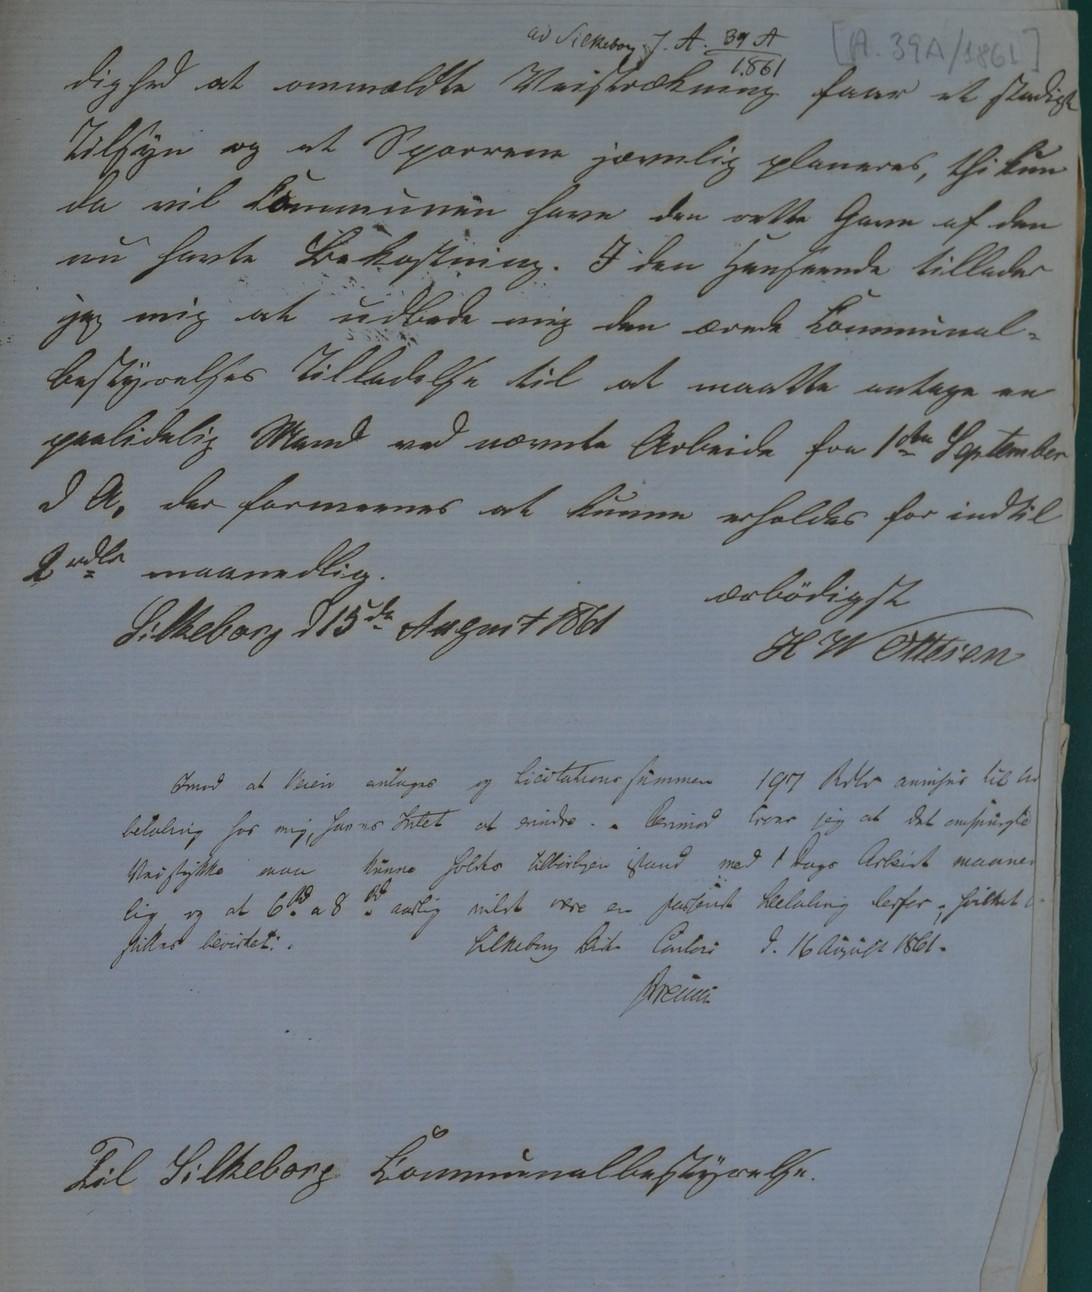 ad Silkeborg J. A. 39 A
1861
[A. 39A/1861]
dighed at ommeldte Veistrækning faar et stadigt
Tilsyn og at Sporrene jævnlig planeres, thi kun
da vil Communen have den rette Gavn af den
nu havte Bekostning. I den Henseende tillader
jeg mig at udbede mig den ærede Communal-
bestyrelses Tilladelse til at maatte antage en
paalidelig Mand ved nævnte Arbeide fra 1ste September
d A, der formeenes at kunne erholdes for indtil
2 rdlr maanedlig.
ærbödigst
Silkeborg d 15de August 1861
H W Ottesen
Imod at Veien antages og Licitationssummen 197 Rdlr anvises til Ud
betaling hos mig, haves Intet at erindre. Derimod troer jeg at det omspurgte
Veistykke maa kunne holdes tilbörligen istand med 1 Dags Arbeide maaned
lig og at 6 Rd a 8 Rd aarlig vilde være en passende Betaling derfor, hvilket
Silkeborg Birk Contoir d. 16 August 1861.
Til Silkeborg Communalbestyrelse.